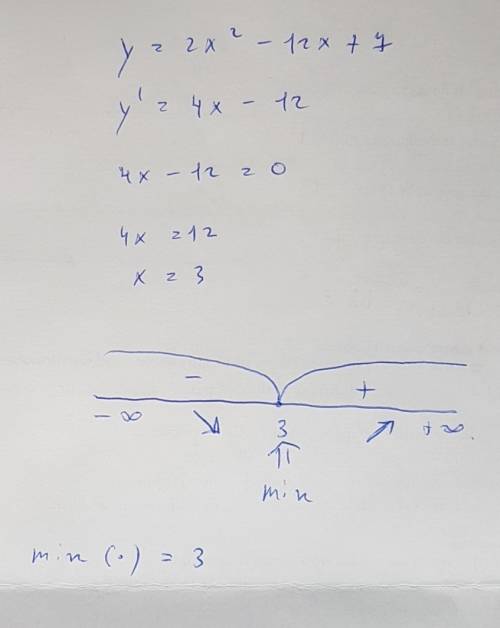 y = 2x² - 12x + 7
y' = 4x - 12
4x - 12 = 0
4x = 12
x = 3
- +
-∞ ↘ 3 ↗ +∞
⇑
min
min (•) = 3